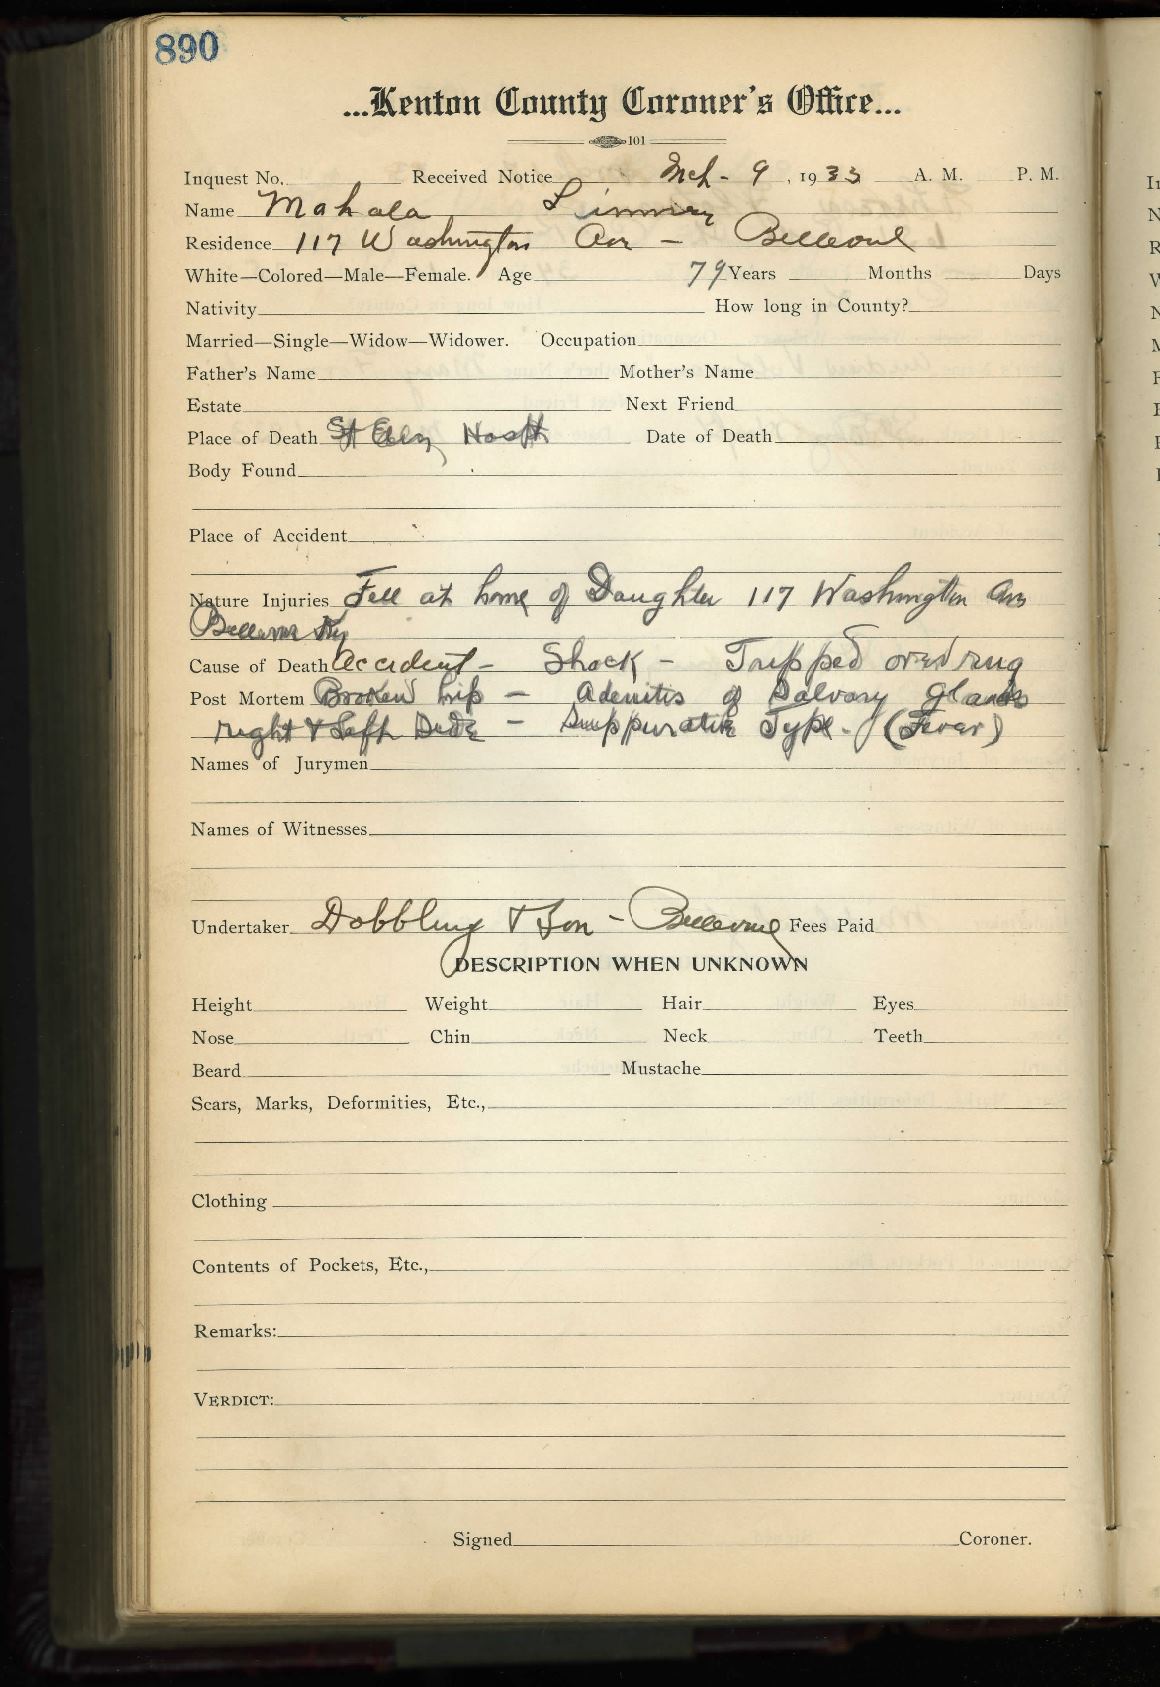 890
...Kenton County Coroner's Office...
101
Inquest No. Received Notice Mch - 9, 1933 A. M. P. M.
Name Mahala
Residence 117 Washington Ave - Bellevue
White—Colored—Male—Female. Age 79 Years Months Days
Nativity How long in County?
Married—Single—Widow—Widower. Occupation
Father's Name Mother's Name
Estate Next Friend
Place of Death St Eliz Hospt Date of Death
Body Found
Place of Accident
Nature Injuries Fell at home of Daughter 117 Washington Ave
Bellevue Ky
Cause of Death Accident - Shock - Tripped over rug
Post Mortem Broken hip - Adenitis of Salvary Glands
right & Left Side - Suppurative Type. (Fever)
Names of Jurymen
Names of Witnesses
Undertaker Dobbling & Son - Bellevue Fees Paid
DESCRIPTION WHEN UNKNOWN
Height Weight Hair Eyes
Nose Chin Neck Teeth
Beard Mustache
Scars, Marks, Deformities, Etc.,
Clothing
Contents of Pockets, Etc.,
Remarks:
VERDICT:
Signed Coroner.